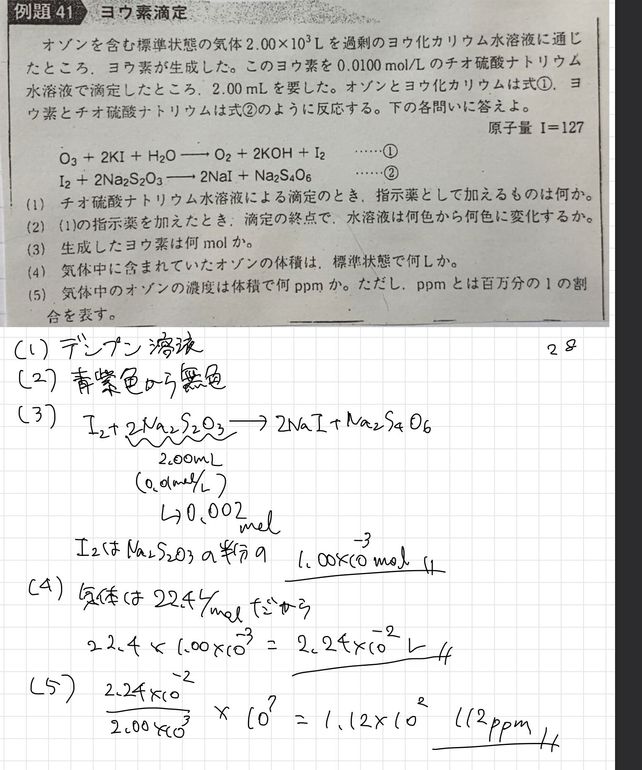 例題 41 ヨウ素滴定
オゾンを含む標準状態の気体 2.00×10³ L を過剰のヨウ化カリウム水溶液に通じ
たところ，ヨウ素が生成した。このヨウ素を 0.0100 mol/L のチオ硫酸ナトリウム
水溶液で滴定したところ，2.00 mL を要した。オゾンとヨウ化カリウムは式①，ヨ
ウ素とチオ硫酸ナトリウムは式②のように反応する。下の各問いに答えよ。
原子量 I=127
O₃ + 2KI + H₂O ─→ O₂ + 2KOH + I₂ ……①
I₂ + 2Na₂S₂O₃ ─→ 2NaI + Na₂S₄O₆ ……②
(1) チオ硫酸ナトリウム水溶液による滴定のとき，指示薬として加えるものは何か。
(2) (1)の指示薬を加えたとき，滴定の終点で，水溶液は何色から何色に変化するか。
(3) 生成したヨウ素は何 mol か。
(4) 気体中に含まれていたオゾンの体積は，標準状態で何Lか。
(5) 気体中のオゾンの濃度は体積で何 ppm か。ただし，ppm とは百万分の1の割
合を表す。
(1) デンプン溶液 28
(2) 青紫色から無色
(3)
I₂ + 2Na₂S₂O₃ → 2NaI + Na₂S₄O₆
2.00mL
(0.01mol/L)
↳ 0.002 mol
I₂は Na₂S₂O₃ の半分の 1.00×10⁻³ mol
(4) 気体は 22.4L/mol だから
22.4 × 1.00×10⁻³ = 2.24×10⁻² L
(5) 2.24×10⁻² / 2.00×10³ × 10⁷ = 1.12×10² 112ppm